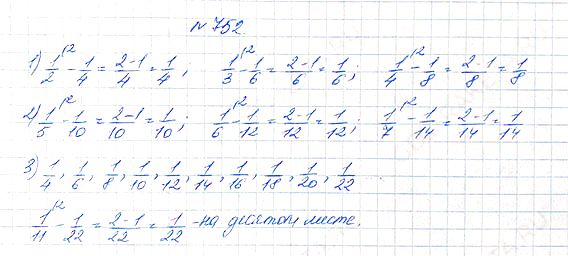 № 752.
1) 1/2^(12 - 1/4 = (2-1)/4 = 1/4; 1/3^(12 - 1/6 = (2-1)/6 = 1/6; 1/4^(12 - 1/8 = (2-1)/8 = 1/8
2) 1/5^(12 - 1/10 = (2-1)/10 = 1/10; 1/6^(12 - 1/12 = (2-1)/12 = 1/12; 1/7^(12 - 1/14 = (2-1)/14 = 1/14
3) 1/4, 1/6, 1/8, 1/10, 1/12, 1/14, 1/16, 1/18, 1/20, 1/22
1/11^(12 - 1/22 = (2-1)/22 = 1/22 - на десятом месте.